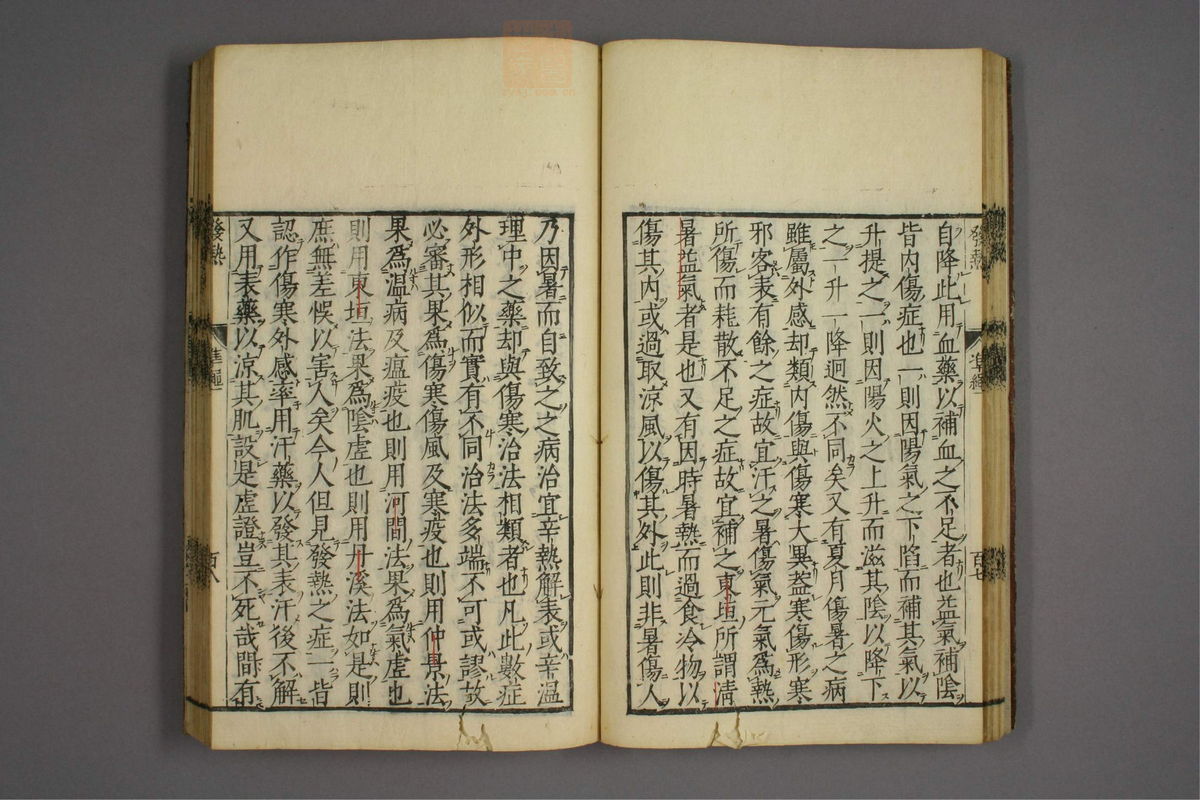 發熱
準繩
百七
自降此用血藥以補血之不足者也益氣補陰
皆内傷症也一則因陽氣之下陷而補其氣以
升提之一則因陽火之上升而滋其陰以降下
之一升一降迥然不同矣又有夏月傷暑之病
雖屬外感却類内傷與傷寒大異葢寒傷形寒
邪客表有餘之症故宜汗之暑傷氣元氣爲熱
所傷而耗散不足之症故宜補之東垣所謂清
暑益氣者是也又有因時暑熱而過食冷物以
傷其内或過取涼風以傷其外此則非暑傷人
乃因暑而自致之之病治宜辛熱解表或辛温
理中之藥却與傷寒治法相類者也凡此數症
外形相似而實有不同治法多端不可或謬故
必審其果爲傷寒傷風及寒疫也則用仲景法
果爲温病及瘟疫也則用河間法果爲氣虚也
則用東垣法果爲陰虚也則用丹溪法如是則
庶無差悞以害人矣今人但見發熱之症一皆
認作傷寒外感率用汗藥以發其表汗後不解
又用表藥以涼其肌設是虚證豈不死哉間有
發熱
準繩
百八